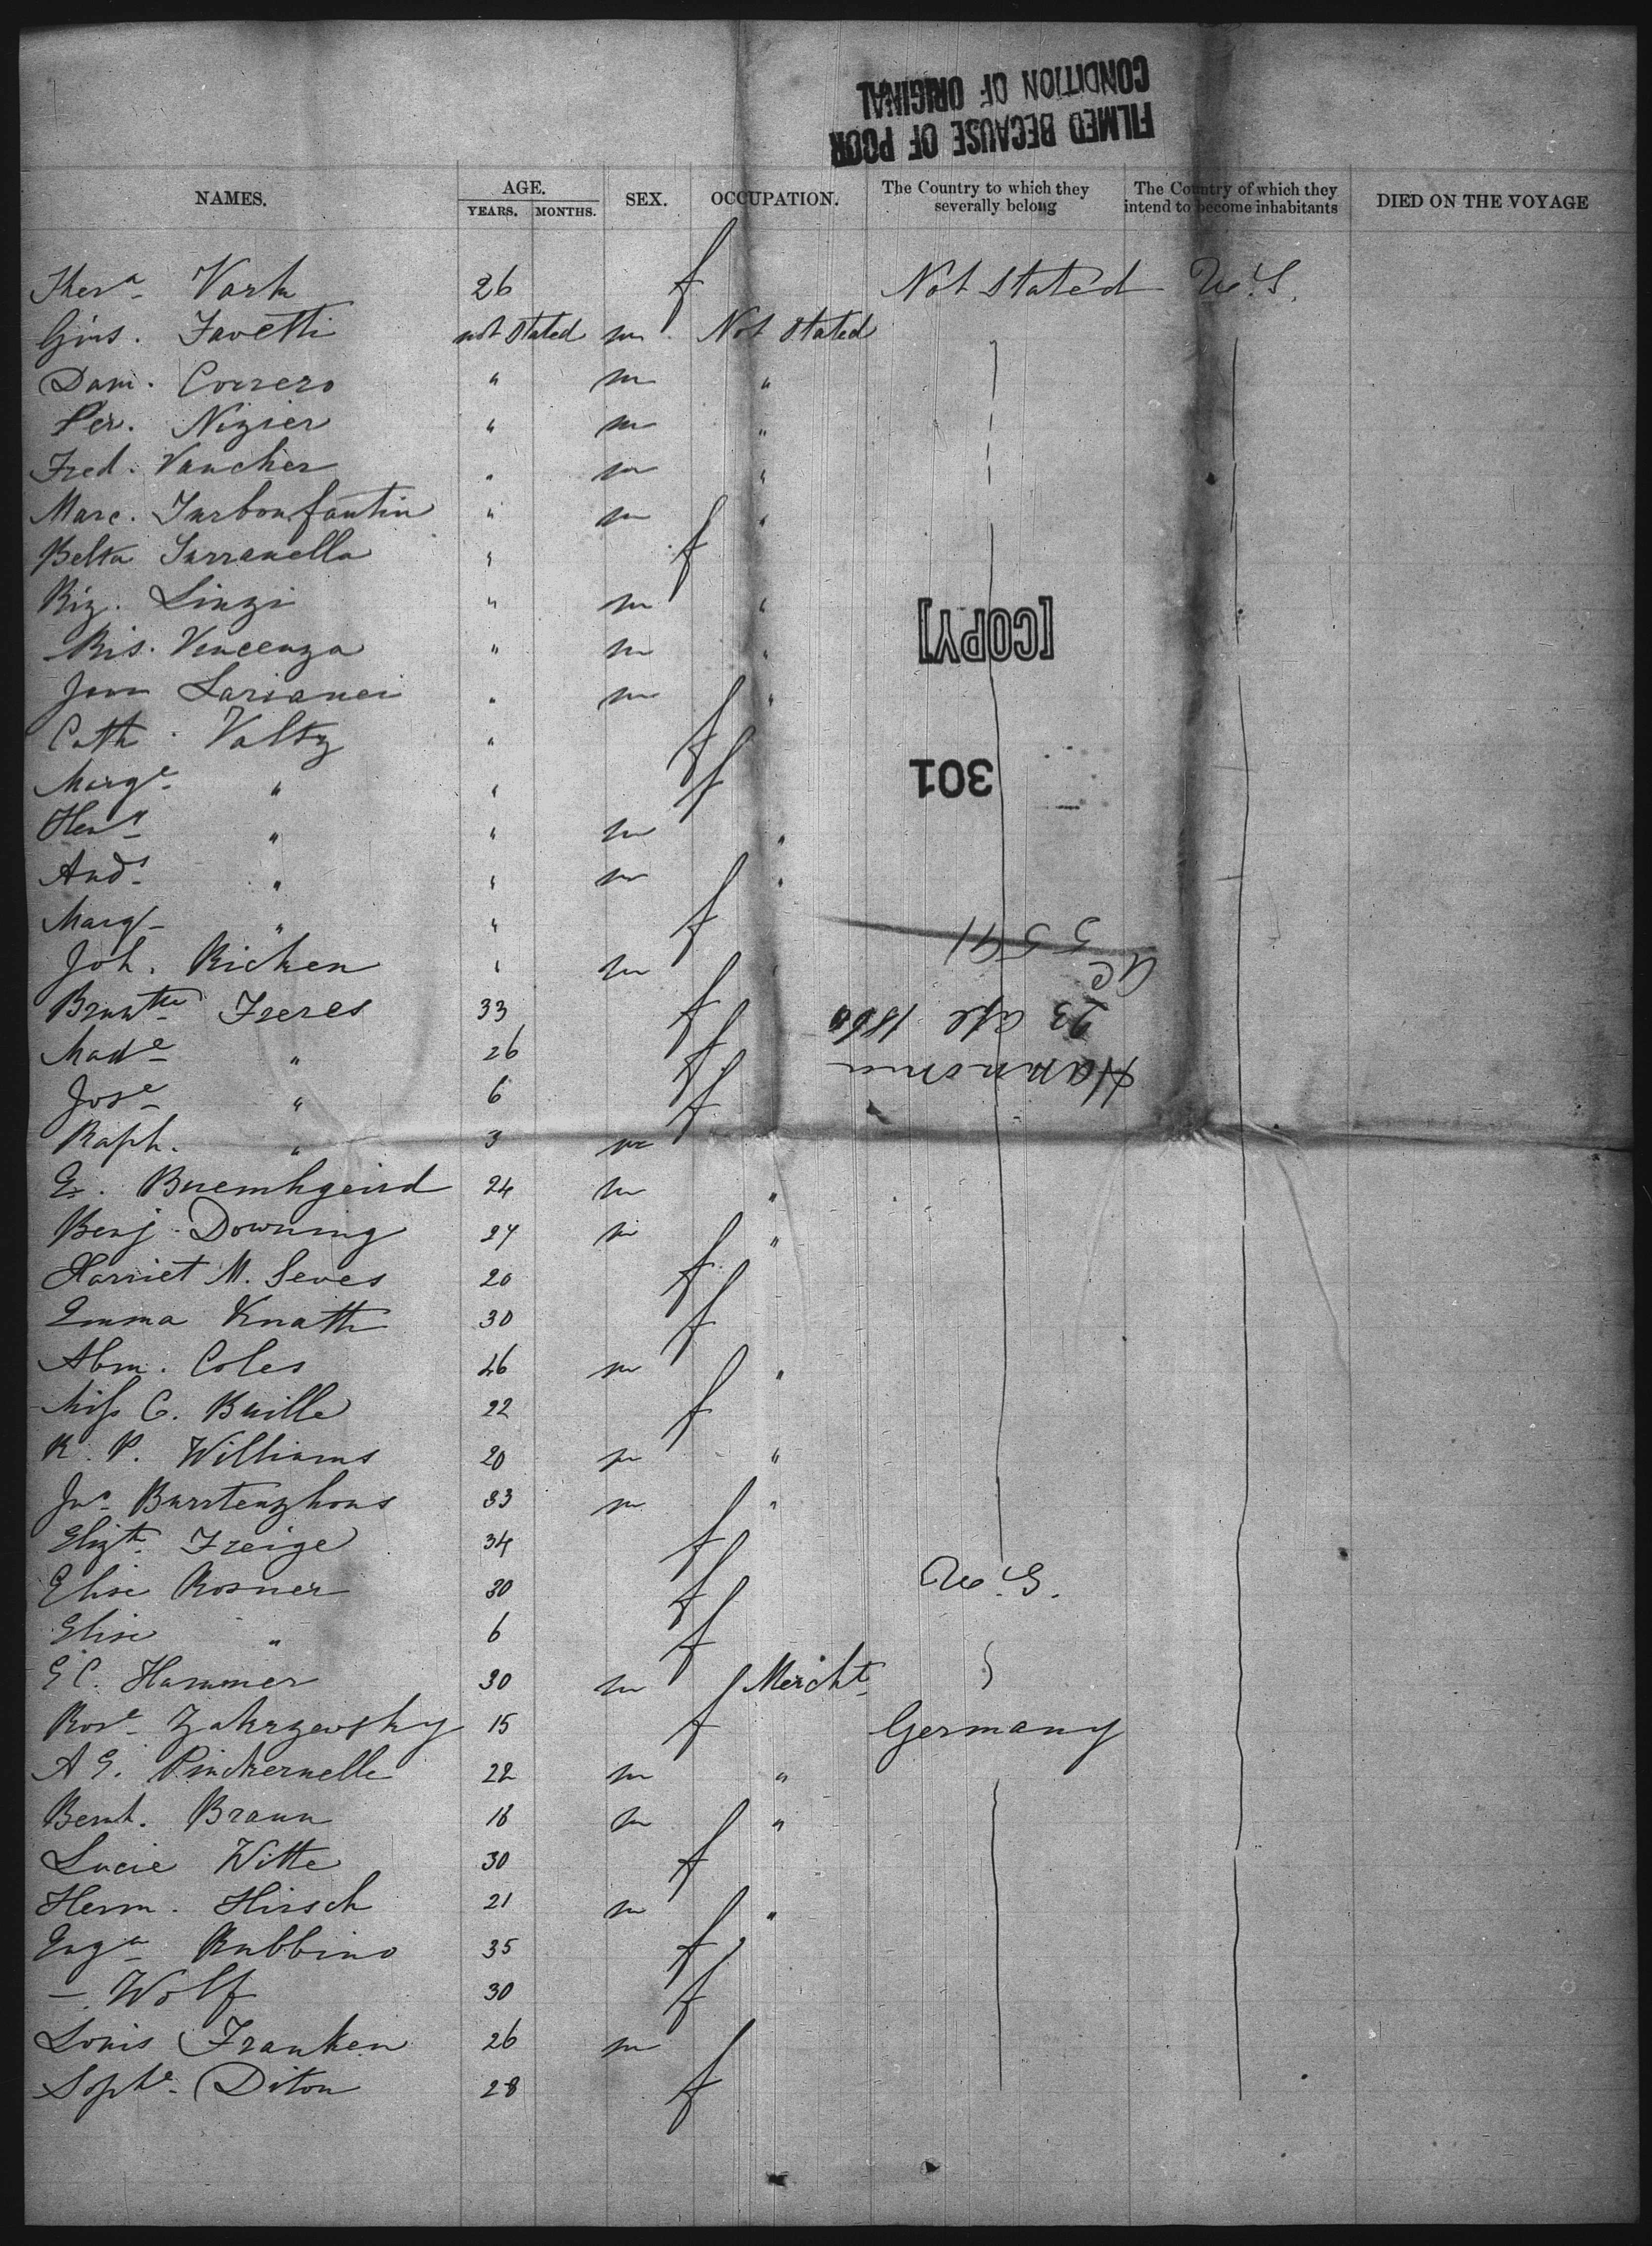 FILMED BECAUSE OF POOR
CONDITION OF ORIGINAL
NAMES. AGE. SEX. OCCUPATION. The Country to which they severally belong The Country of which they intend to become inhabitants DIED ON THE VOYAGE
YEARS. MONTHS.
Thers.a Vark 26 f Not Stated U.S.
Gius. Favetti not stated m Not Stated
Dani. Correro " m "
Per. Nizier " m "
Fred. Vaucher " m "
Marc. Turbonfantin " m "
Belta Surranella " f
Riz. Linzi " m "
Ris. Vencenza " m "
Jean Sarianei " m "
Cath. Valtz " f
Marg.e " " f
Hen.y " " m "
And.s " " m "
Marg. " " f
Joh. Ricken " m
Freres 33 f
Mad.e " 26 f
Jos.e " 6 f
Raph. " 3 m
E. Buemhgeird 24 m "
Benj. Downing 27 m "
Harriet M. Seves 20 f
Emma Knath 30 f
Abm. Coles 46 m "
Miss C. Buille 22 f
R. P. Williams 20 m "
Jno. Burstenzhous 33 m "
Elizth. Freige 34 f
Elise Rosner 30 f U.S.
Elise " 6 f
E C. Hammer 30 m Mercht.
Ros.e Zakrzewsky 15 f Germany
A G. Pinckernelle 22 m "
Bernh. Braun 18 m "
Lucie Witte 30 f
Herm. Hirsch 21 m "
Eug.a Rubbino 35 f
— Wolf 30 f
Louis Franken 26 m
Soph.e Diton 28 f
[COPY]
301
5591
23 Apl 1860
Hammonia